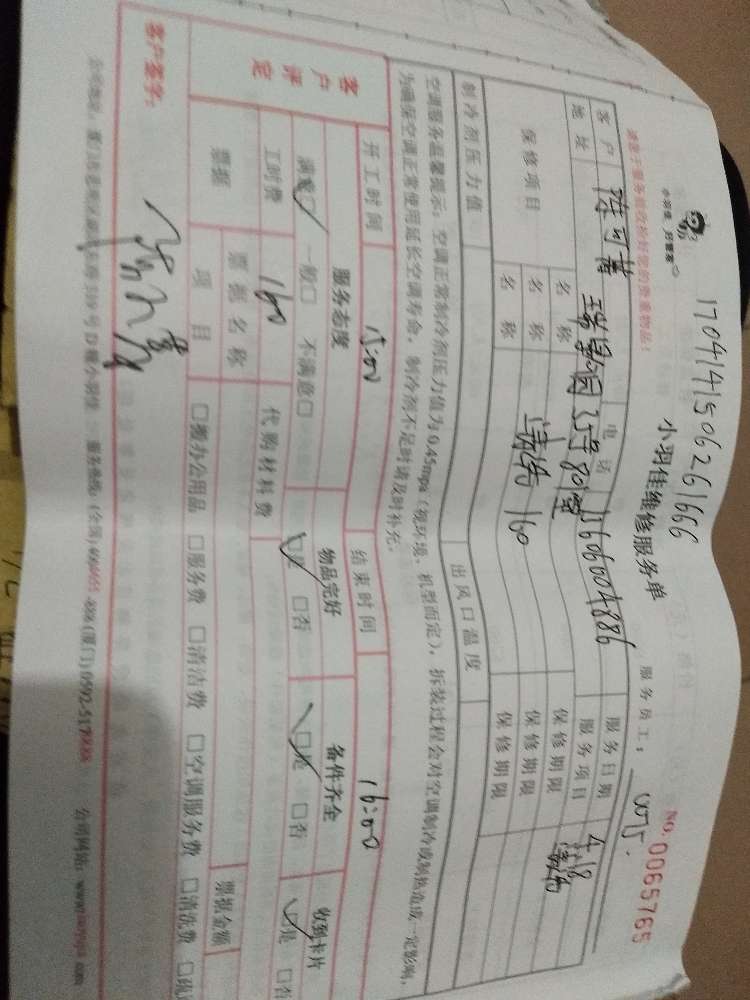 1704141506261666
小羽佳 好管家
小羽佳维修服务单
NO.0065765
服务员工:
请在于服务前收检好您的贵重物品!
客户
电话
13606004886
服务日期
4.18
地址
服务项目
清洗
保修项目
名称
清洗 160
保修期限
名称
保修期限
名称
保修期限
制冷剂压力值
出风口温度
空调服务温馨提示:空调正常制冷剂压力值为0.45mpa(视环境、机型而定),拆装过程会对空调制冷或制热造成一定影响,
为确保空调正常使用延长空调寿命,制冷剂不足时请及时补充。
开工时间
15:00
结束时间
16:00
客户评定
服务态度
物品完好
备件齐全
收到卡片
满意□ 一般□ 不满意□
□是 □否
□是 □否
□是 □否
工时费
160
代购材料费
票据
票据名称
票据金额
项目
□搬办公用品 □服务费 □清洁费 □空调服务费 □清洗费
客户签字: